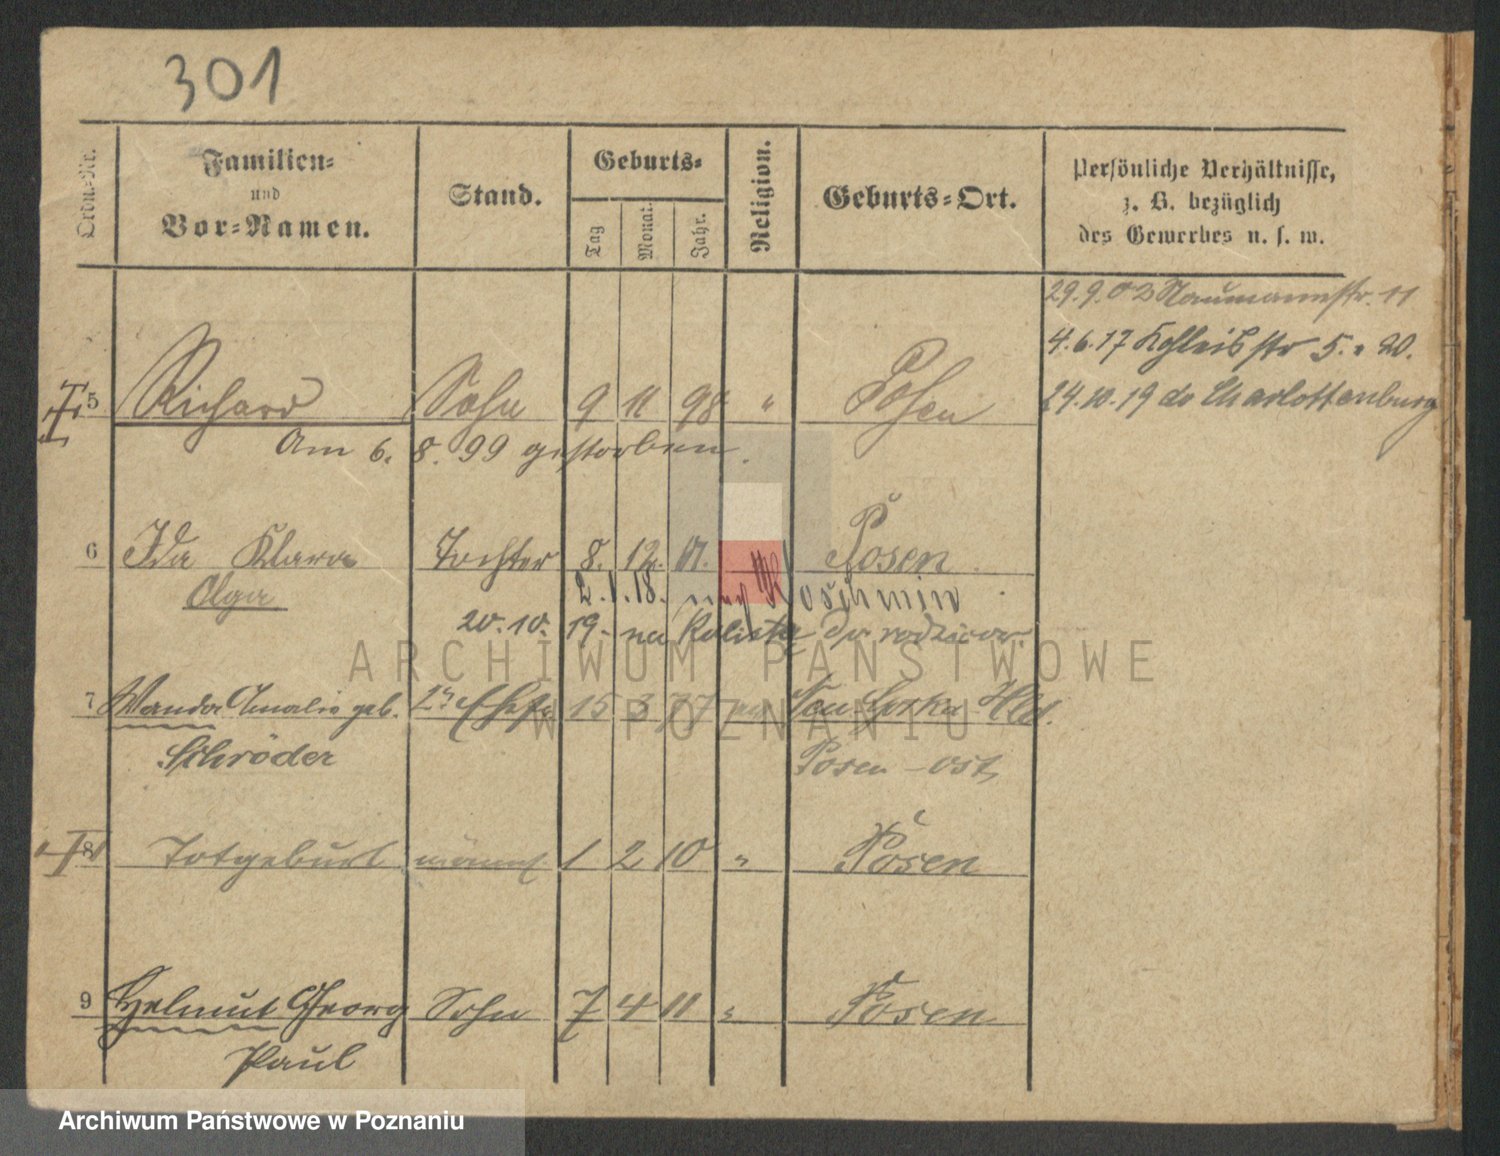 301
Ordn.-Nr.
Familien-
und
Vor-Namen.
Stand.
Geburts-
Tag
Monat.
Jahr.
Religion.
Geburts-Ort.
Persönliche Verhältnisse,
z. B. bezüglich
des Gewerbes u. s. w.
29.9.02 Naumannstr. 11
4.6.17 str 5. 20.
24.10.19 do Charlottenburg
5 Richard Sohn 9 11 98 " Posen
Am 6. 8. 99 gestorben.
6 Ida Klara Tochter 8. 12. 01. Posen
Olga
2. 1. 18. nach Koschmin
20. 10. 19. na do rodziców.
7 Wanda Amalie geb. 2te Ehefr 15 3 77 Hld.
Schröder
Posen-Ost,
8 Totgeburt männl. 1 2 10 " Posen
9 Helmut Georg Sohn 7 4 11 " Posen
Paul
ARCHIWUM PAŃSTWOWE
W POZNANIU
Archiwum Państwowe w Poznaniu